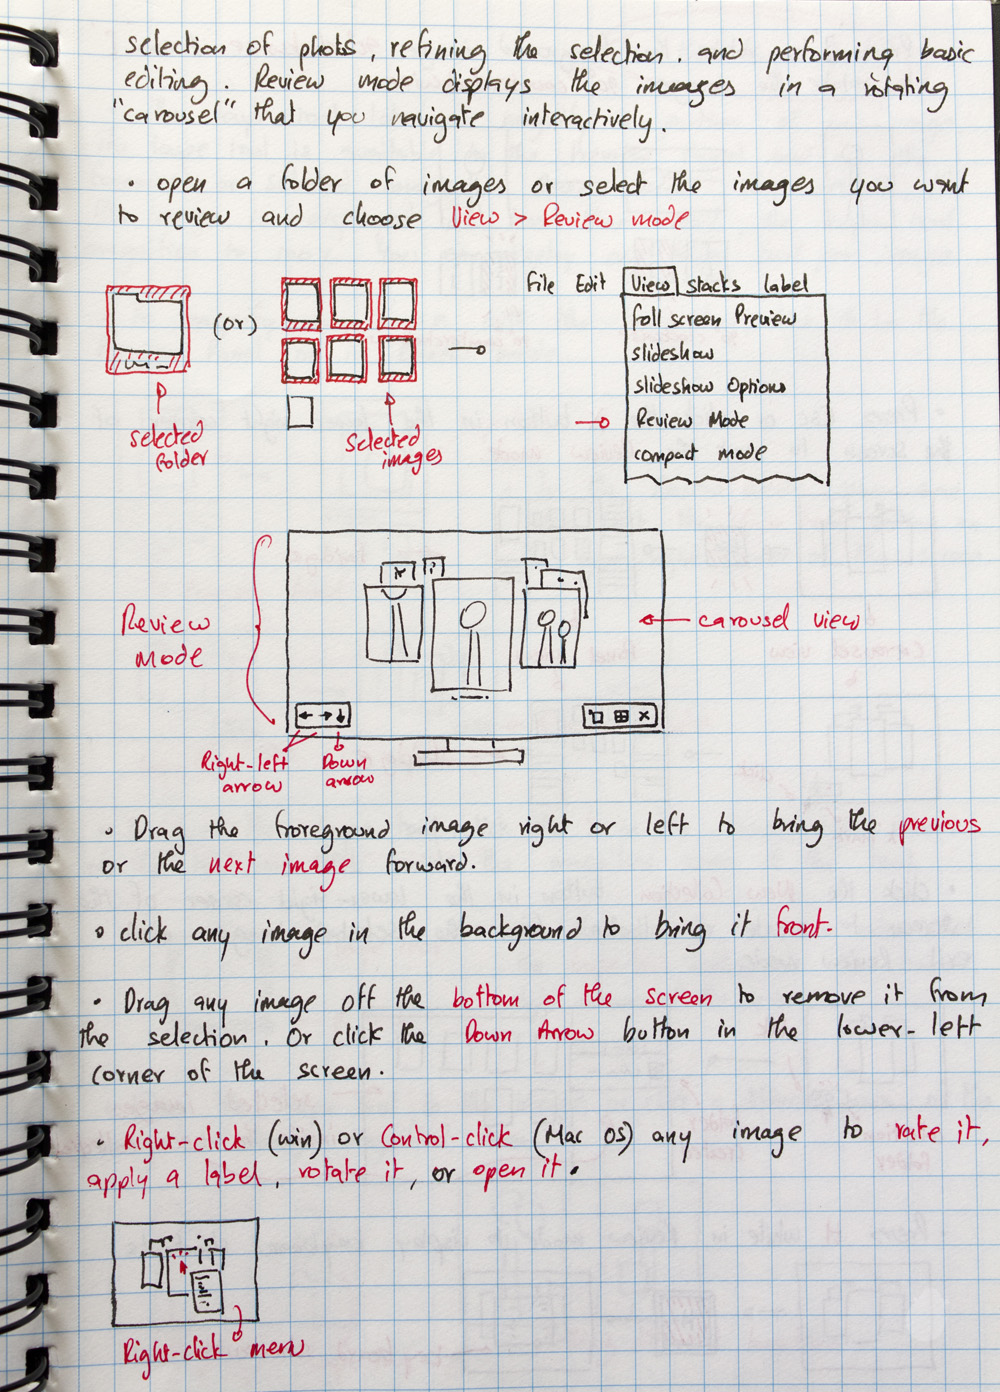 selection of photos, refining the selection, and performing basic
editing. Review mode displays the images in a rotating
"carousel" that you navigate interactively.
• open a folder of images or select the images you want
to review and choose View > Review mode
(or)
selected
folder
selected
images
File Edit View stacks label
full screen Preview
slideshow
slideshow Options
Review Mode
compact mode
Review
mode
carousel view
Right-left
arrow
Down
arrow
• Drag the foreground image right or left to bring the previous
or the next image forward.
• click any image in the background to bring it front.
• Drag any image off the bottom of the screen to remove it from
the selection. Or click the Down Arrow button in the lower-left
corner of the screen.
• Right-click (win) or Control-click (Mac OS) any image to rate it,
apply a label, rotate it, or open it.
Right-click menu